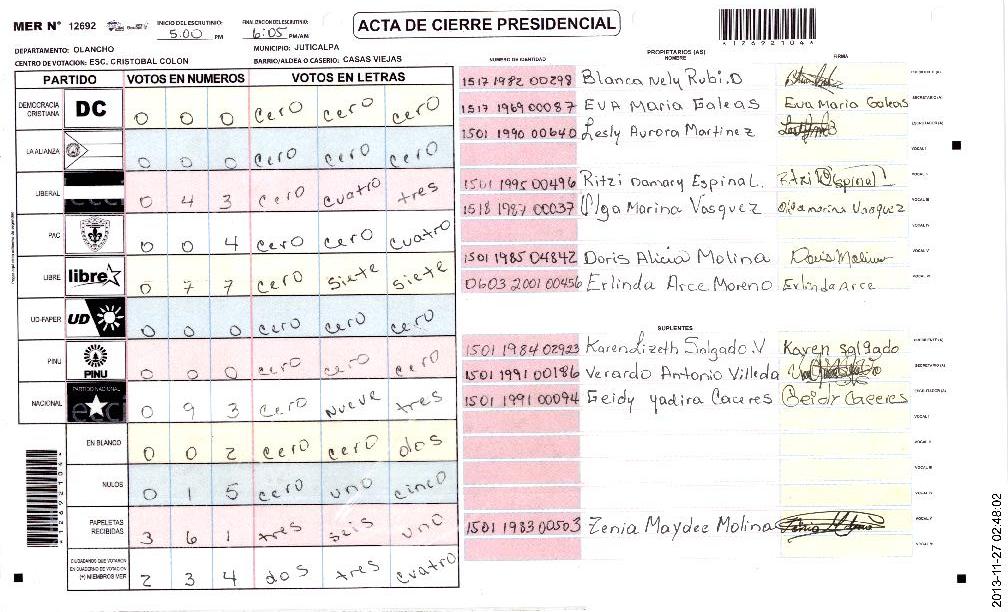 MER N° 12692
INICIO DEL ESCRUTINIO: 5:00 PM
FINALIZACION DEL ESCRUTINIO: 6:05 PM/AM
ACTA DE CIERRE PRESIDENCIAL
*12692104*
DEPARTAMENTO: OLANCHO
MUNICIPIO: JUTICALPA
CENTRO DE VOTACION: ESC. CRISTOBAL COLON
BARRIO/ALDEA O CASERIO: CASAS VIEJAS
PARTIDO VOTOS EN NUMEROS VOTOS EN LETRAS
DEMOCRACIA CRISTIANA DC 0 0 0 cero cero cero
LA ALIANZA 0 0 0 cero cero cero
LIBERAL 0 4 3 cero cuatro tres
PAC 0 0 4 cero cero cuatro
LIBRE libre 0 7 7 cero siete siete
UD-FAPER UD 0 0 0 cero cero cero
PINU PINU 0 0 0 cero cero cero
NACIONAL PARTIDO NACIONAL 0 9 3 cero nueve tres
EN BLANCO 0 0 2 cero cero dos
NULOS 0 1 5 cero uno cinco
PAPELETAS RECIBIDAS 3 6 1 tres seis uno
CIUDADANOS QUE VOTARON EN CUADERNO DE VOTACION (+) MIEMBROS MER 2 3 4 dos tres cuatro
PROPIETARIOS (AS)
NUMERO DE IDENTIDAD NOMBRE FIRMA
1517 1982 00298 Blanca Nely Rubi.O
1517 1969 00087 EVA Maria Galeas Eva Maria Galeas SECRETARIO(A)
1501 1990 00640 Lesly Aurora Martinez ESCRUTADOR(A)
VOCAL I
1501 1995 00496 Ritzi Damary Espinal. Ritzi D Espinal
1518 1987 00037 Olga Marina Vasquez Olga marina Vasquez VOCAL III
VOCAL IV
1501 1985 04842 Doris Alicia Molina Doris Molina VOCAL V
0603 2001 00456 Erlinda Arce Moreno Erlinda Arce
SUPLENTES
1501 1984 02923 Karen Lizeth Salgado.V Karen salgado
1501 1991 00186 Verardo Antonio Villeda SECRETARIO(A)
1501 1991 00094 Geidy yadira Caceres Geidy Caceres ESCRUTADOR(A)
VOCAL I
VOCAL II
VOCAL III
VOCAL IV
1501 1983 00503 Zenia Maydee Molina VOCAL V
2013-11-27 02:48:02